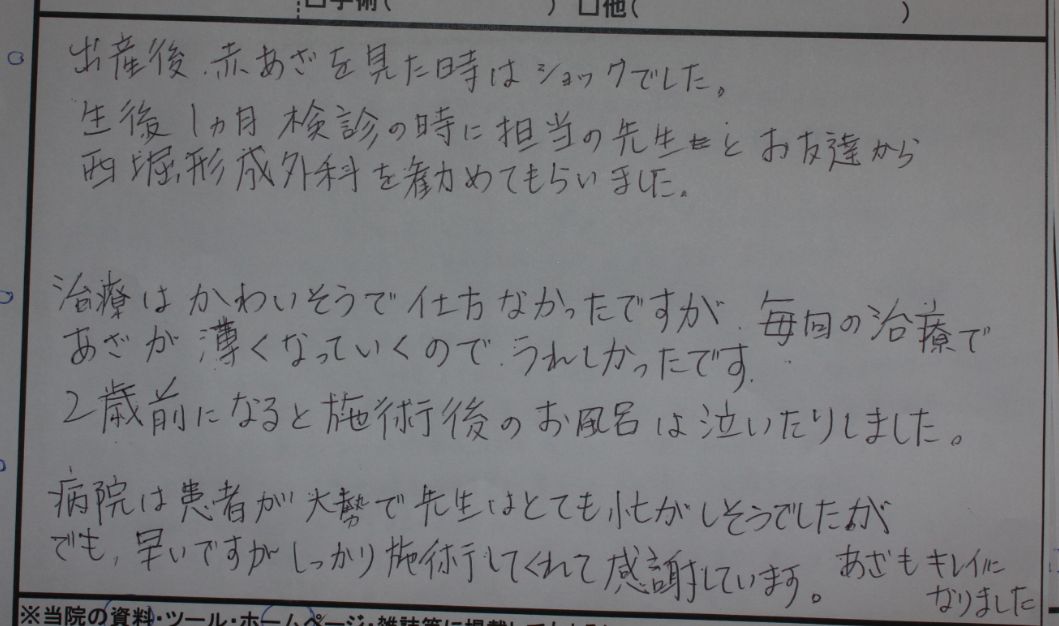 □手術(　　　) □他(　　　)
出産後、赤あざを見た時はショックでした。
生後1ヵ月検診の時に担当の先生とお友達から
西堀形成外科を勧めてもらいました。
治療はかわいそうで仕方なかったですが、毎回の治療で
あざが薄くなっていくので、うれしかったです。
2歳前になると施術後のお風呂は泣いたりしました。
病院は患者が大勢で先生はとても忙がしそうでしたが
でも、早いですがしっかり施術してくれて感謝しています。あざもキレイに
なりました
※当院の資料・ツール・ホームページ・雑誌等に掲載して